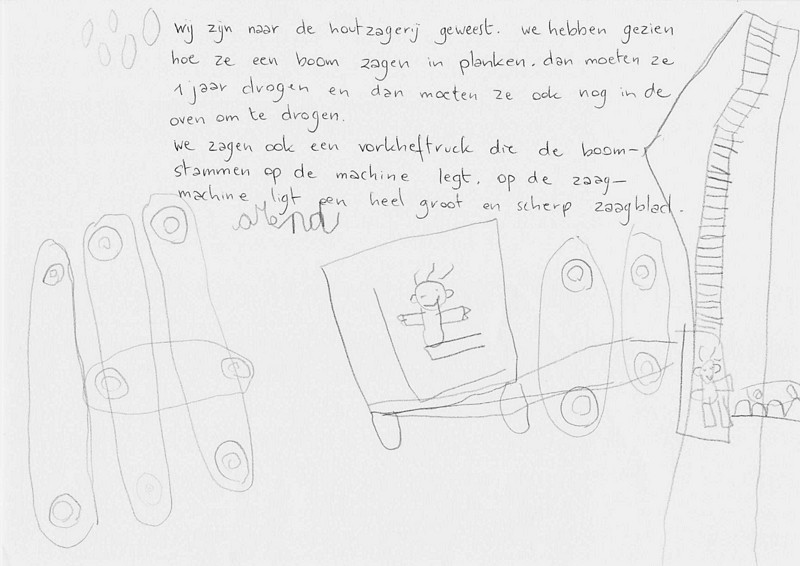 wij zijn naar de houtzagerij geweest. we hebben gezien
hoe ze een boom zagen in planken. dan moeten ze
1 jaar drogen en dan moeten ze ook nog in de
oven om te drogen.
we zagen ook een vorkheftruck die de boom-
stammen op de machine legt. op de zaag-
machine ligt een heel groot en scherp zaagblad.
arend